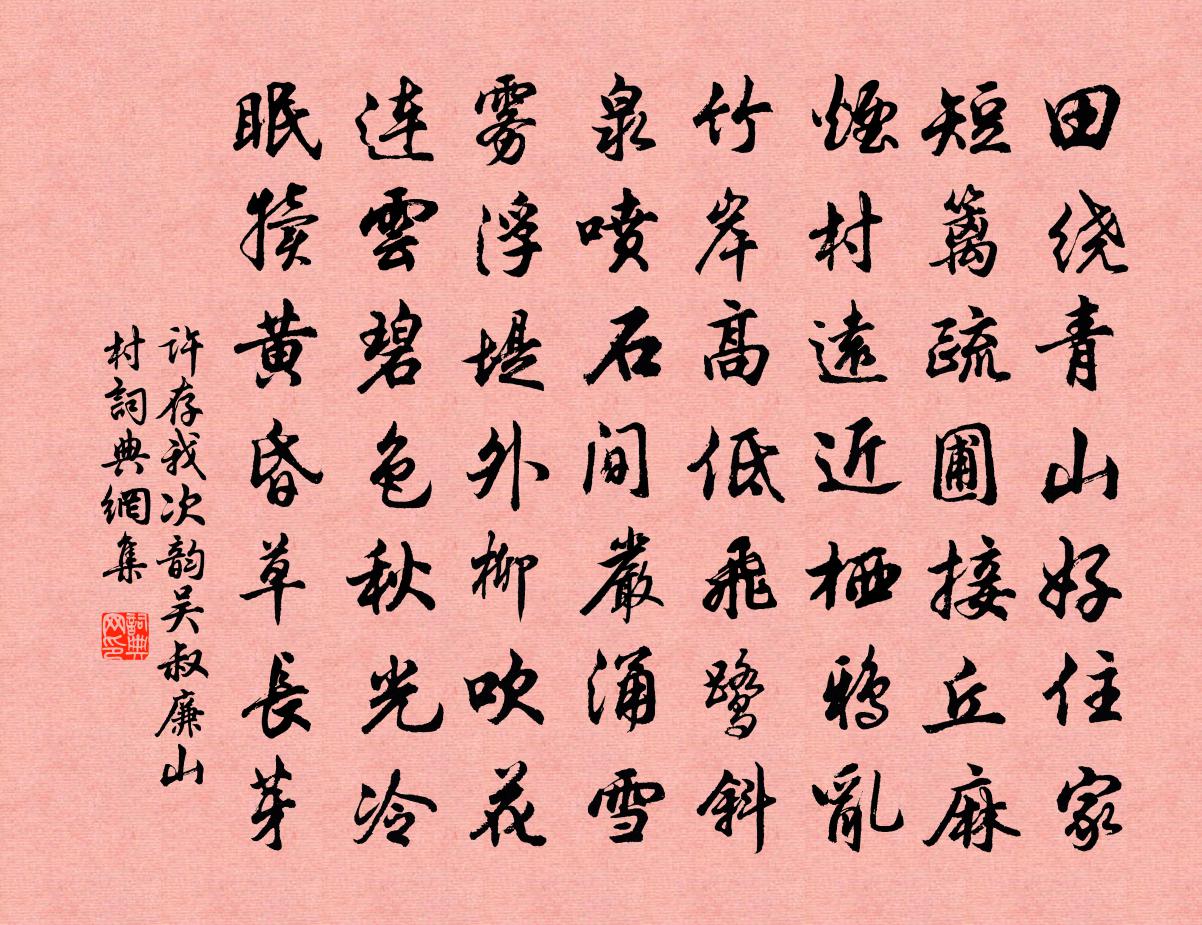 田绕青山好住家
短篱疏圃接丘麻
煙村遠近栖鴉亂
竹岸高低飛鷺斜
泉喷石间嚴涌雪
雾浮堤外柳吹花
连雲碧色秋光冷
眠犊黄昏草長芽
许存我次韵吴叔廉山
村詞典網集
詞典
网印